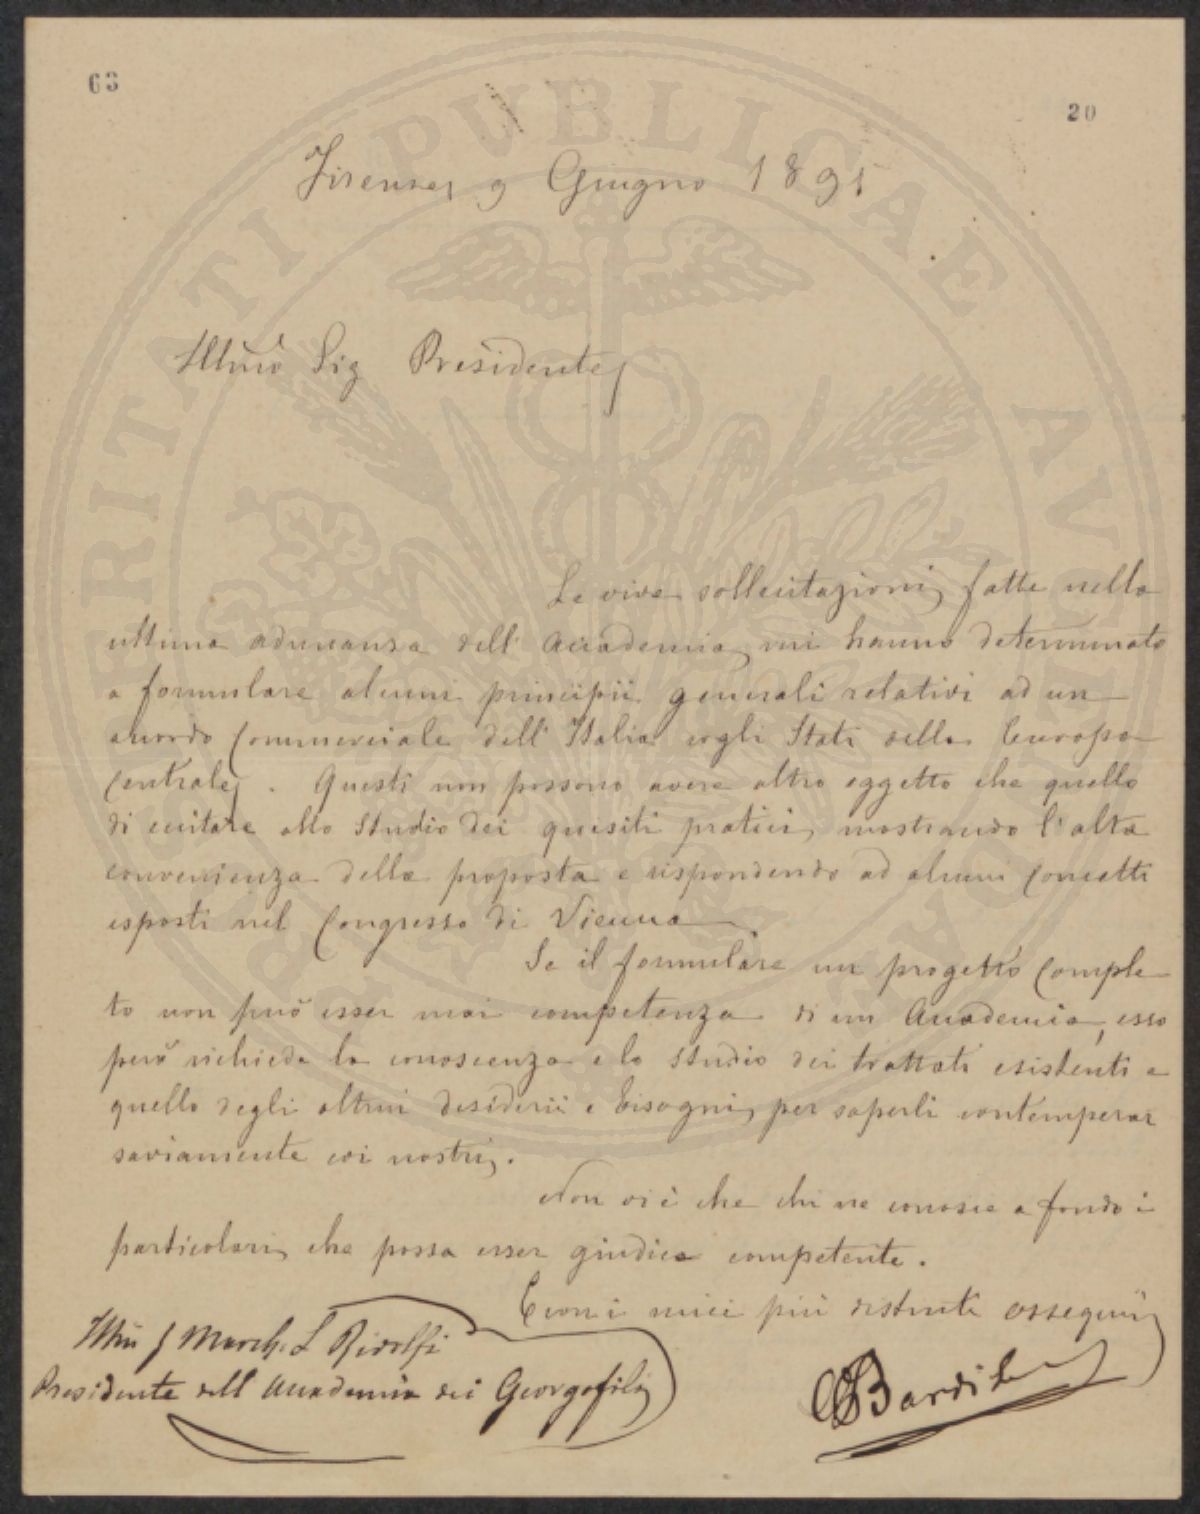 63
20
Firenze, 9 Giugno 1895
Illmo Sig Presidente,
Le vive sollecitazioni, fatte nella
ultima adunanza dell' Accademia, mi hanno determinato
a formulare alcuni principii generali relativi ad un
accordo Commerciale dell' Italia cogli Stati della Europa
Centrale. Questi non possono avere altro oggetto che quello
di eccitare allo Studio dei quesiti pratici, mostrando l'alta
convenienza della proposta e rispondendo ad alcuni Concetti
esposti nel Congresso di Vienna.
Se il formulare un progetto Comple-
to non può esser mai competenza di un Accademia, esso
però richiede la conoscenza e lo Studio dei trattati esistenti e
quello degli altrui desiderii e bisogni, per saperli contemperar
saviamente coi nostri.
Non vi è che chi ne conosce a fondo i
particolari, che possa esser giudice competente.
E con i miei più distinti ossequii,
Illmo S March. L Ridolfi
Presidente dell' Accademia dei Georgofili
Bardi
PUBLICAE